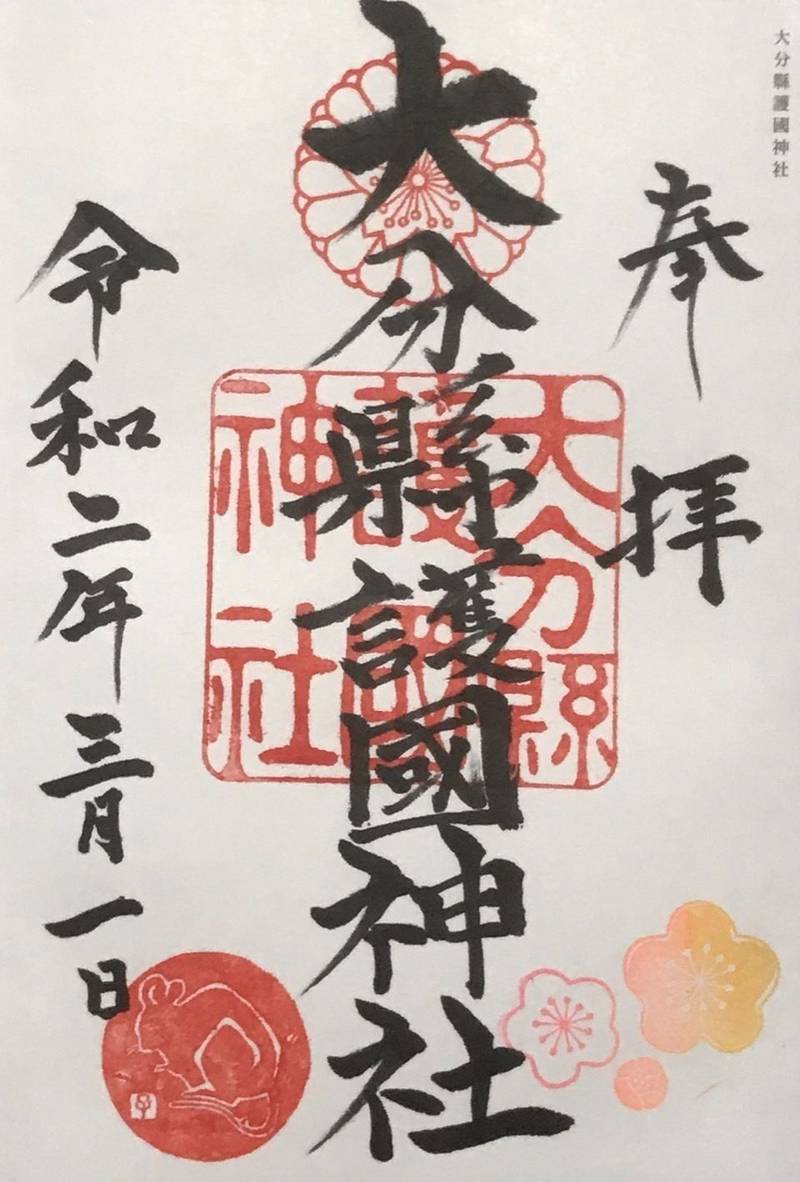 大分縣護國神社
奉拝
大分縣護國神社
大分縣
護國
神社
令和二年三月一日
子